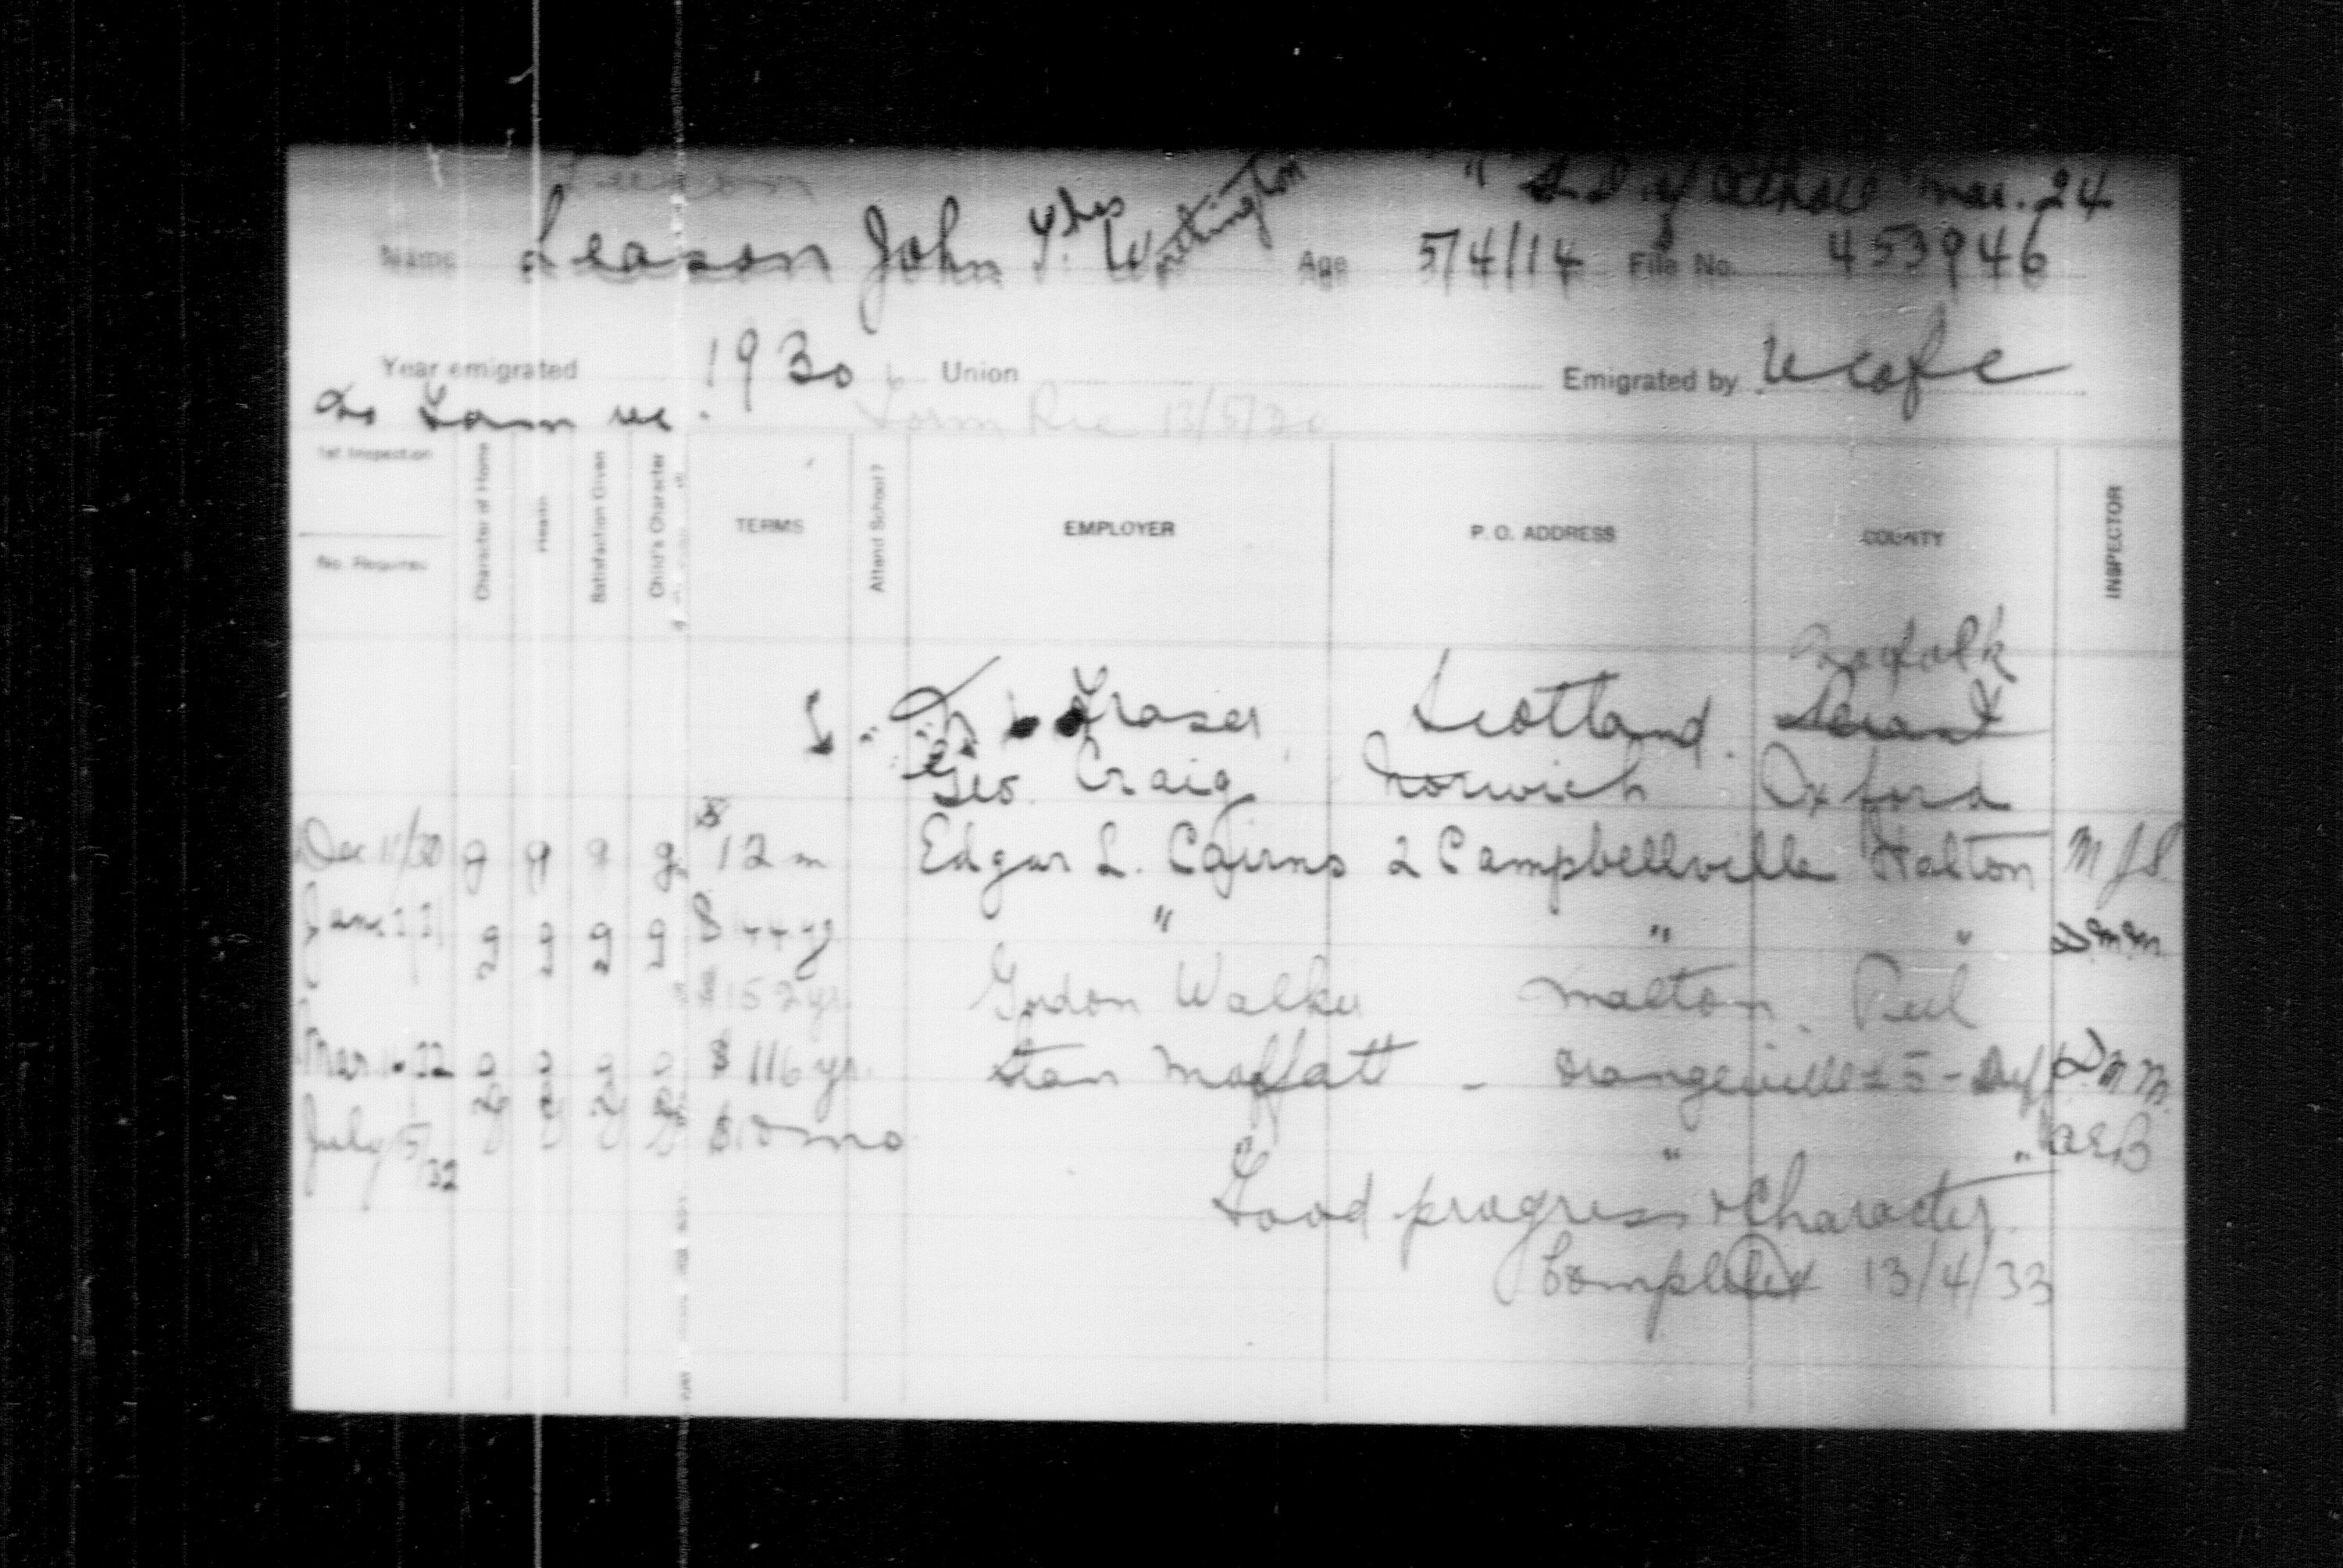 Leason
"S. D. of Atholl" Mar. 24
Name Leason John T. Whittington Age 5/4/14 File No. 453946
Year emigrated 1930 Union Emigrated by U cofe
Form Rec 13/5/30
1st Inspection
No. Required
Character of Home
Health
Satisfaction Given
Child's Character
TERMS
Attend School?
EMPLOYER
P. O. ADDRESS
COUNTY
INSPECTOR
Norfolk
Fraser Scotland. Brant
Geo. Craig Norwich Oxford
Dec 11/30 g g g g $ 12 m Edgar L. Cairns 2 Campbellville Halton M J S
g g g g $ 144 yg " " " D m m
152 yr Gordon Walker Malton. Peel
Mar 22 g g g g $ 116 yr. Stan Moffatt - Orangeville 5 - Duf D M M.
July 5/32 g g g g $10 mo " " " a E B
Good progress & Character.
Completed 13/4/33